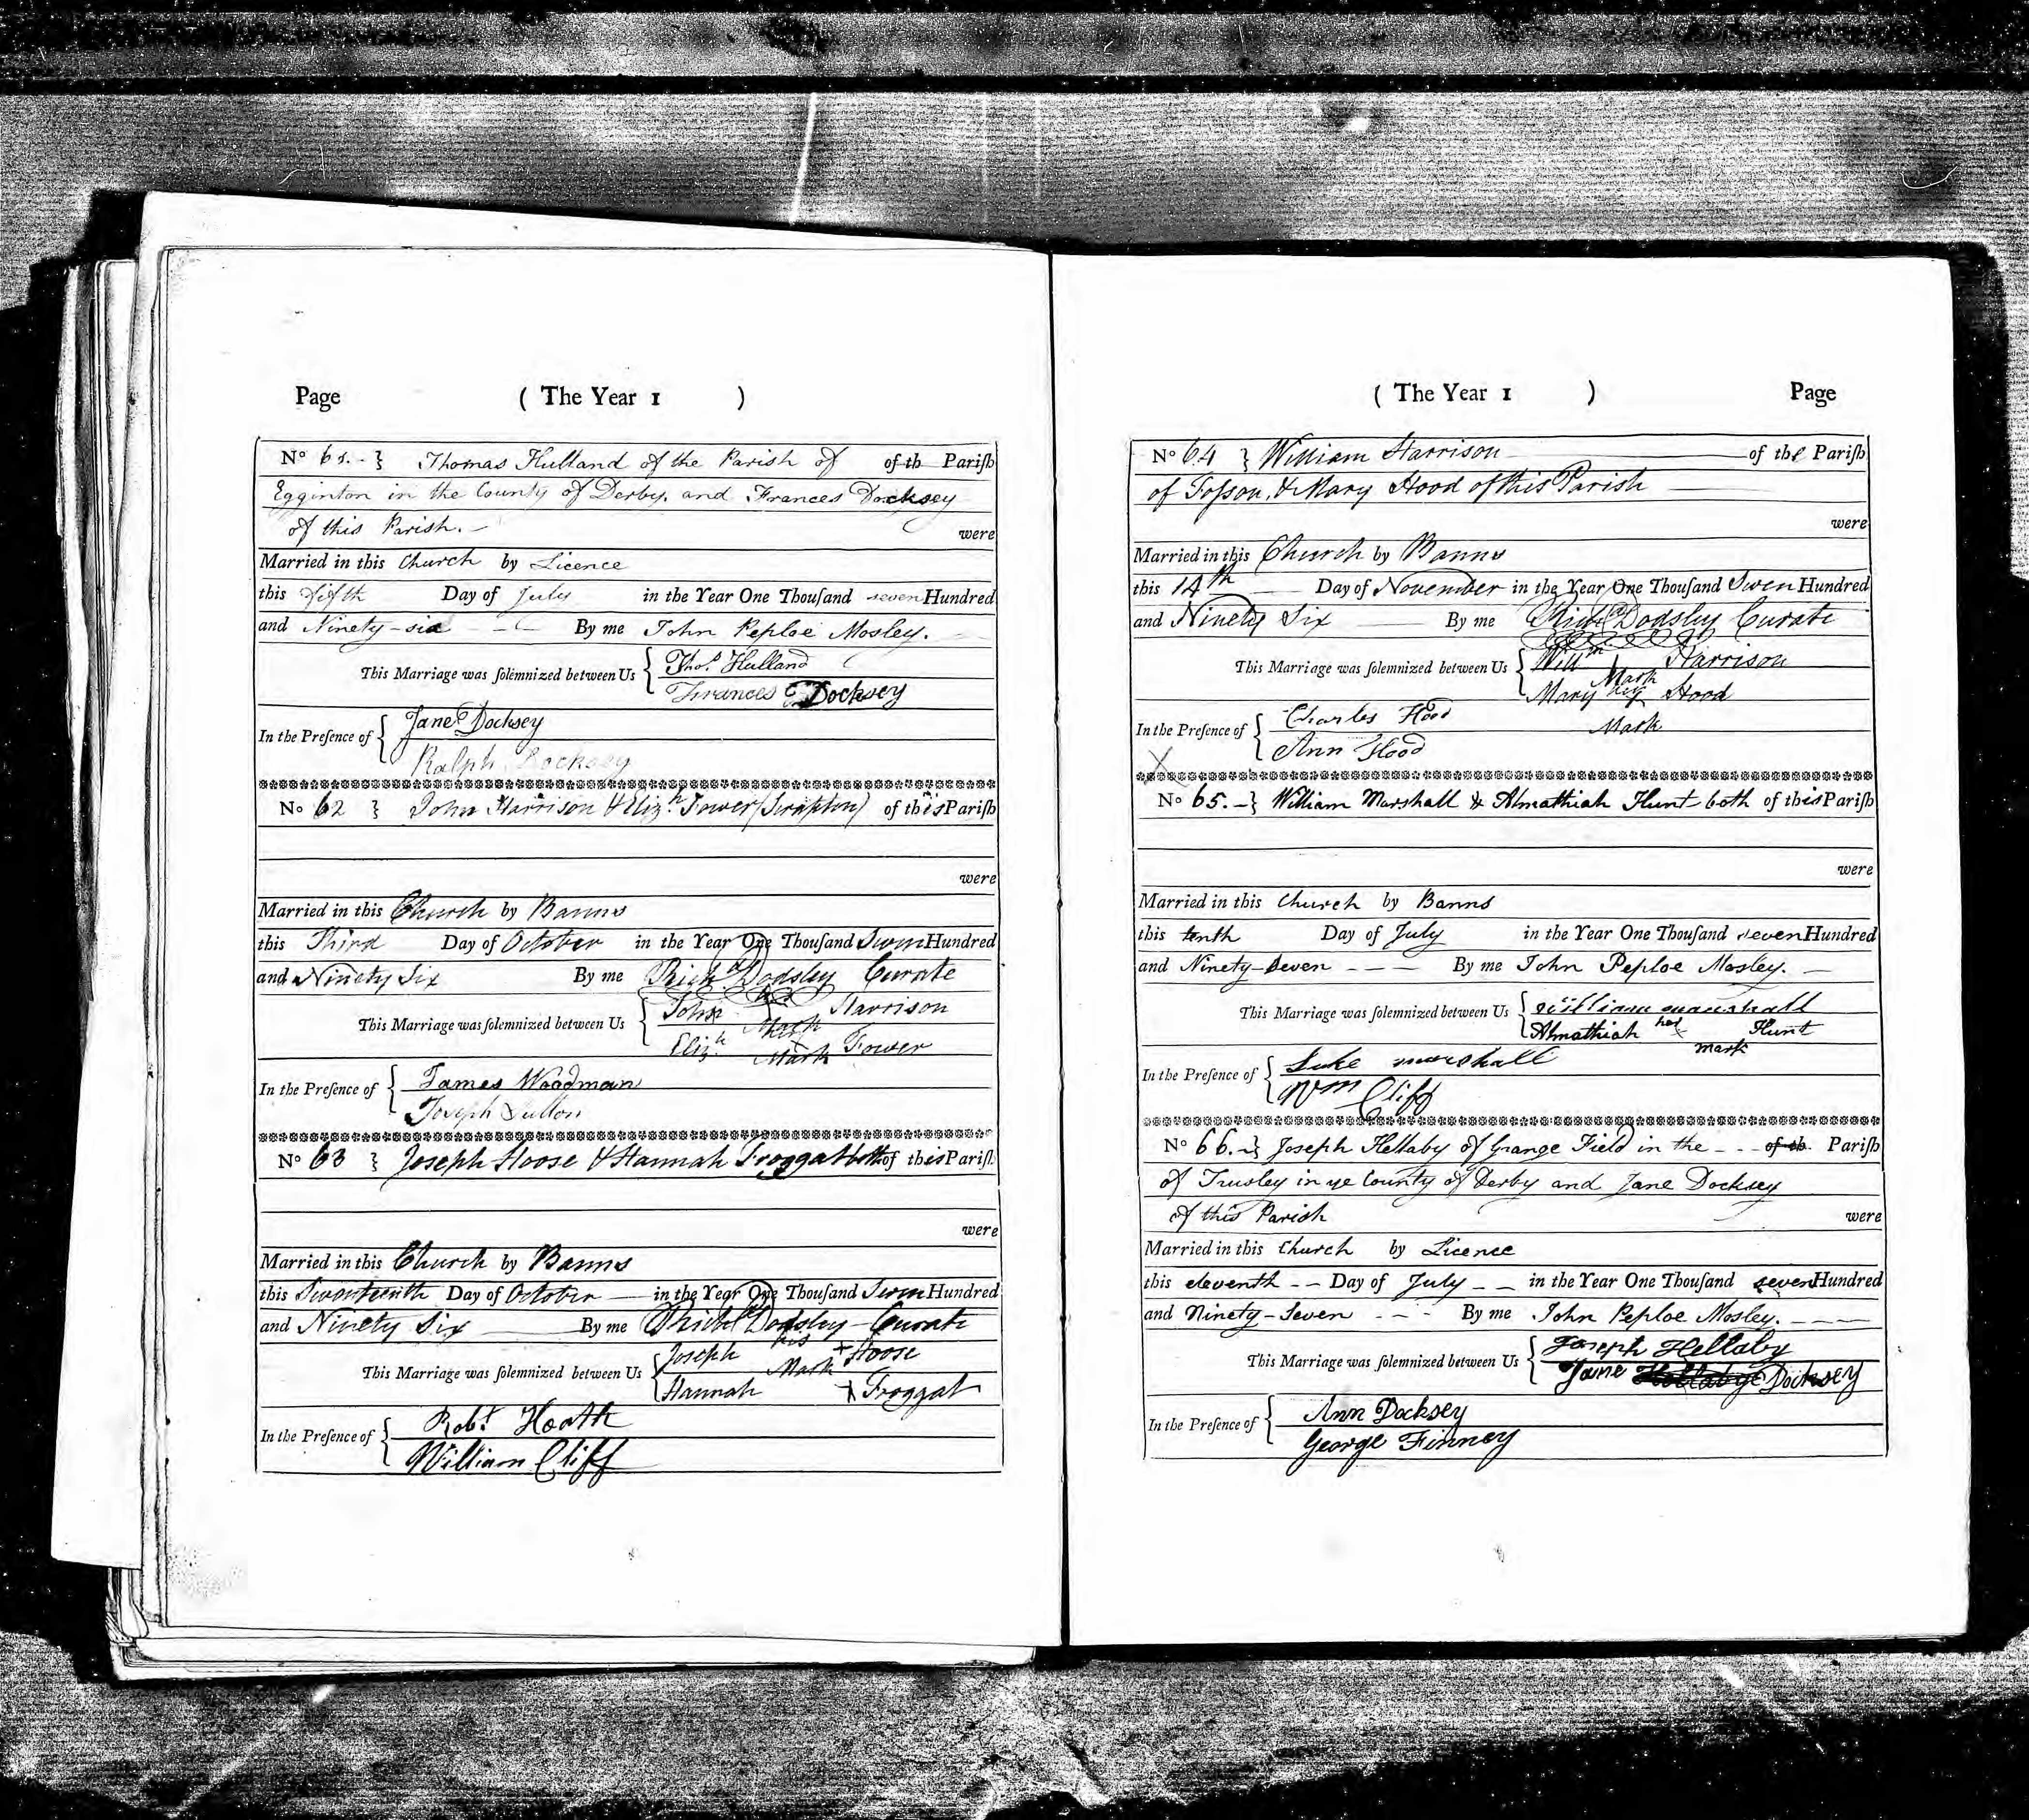 Page ( The Year 1 )
No 61. - } Thomas Hulland of the Parish of of th Pariſh
Egginton in the County of Derby, and Frances Docksey
of this Parish. - were
Married in this Church by Licence
this fifth Day of July in the Year One Thouſand seven Hundred
and Ninety-six - - By me John Peploe Mosley.
This Marriage was ſolemnized between Us { Thos. Hulland
Frances Docksey
In the Preſence of { Jane Docksey
Ralph Docksey
No 62 } John Harrison & Elizth Fower (Scropton) of this Pariſh
were
Married in this Church by Banns
this Third Day of October in the Year One Thouſand Seven Hundred
and Ninety Six By me Richd Dodsley Curate
This Marriage was ſolemnized between Us { John his Mark Harrison
Elizth her Mark Fower
In the Preſence of { James Woodman
Joseph Sutton
No 63 } Joseph Hoose & Hannah Froggat both of this Pariſh
were
Married in this Church by Banns
this Seventeenth Day of October in the Year One Thouſand Seven Hundred
and Ninety Six By me Richd Dodsley Curate
This Marriage was ſolemnized between Us { Joseph his Mark + Hoose
Hannah + Froggat
In the Preſence of { Robt Heath
William Cliff
( The Year 1 ) Page
No 64 } William Harrison of the Pariſh
of Foſson, & Mary Hood of this Parish
were
Married in this Church by Banns
this 14th Day of November in the Year One Thouſand Seven Hundred
and Ninety Six By me Richd Dodsley Curate
This Marriage was ſolemnized between Us { Willm Mark Harrison
Mary her Hood
Mark
In the Preſence of { Charles Hood
Ann Hood
X
No 65. - } William Marshall & Almathiah Hunt both of this Pariſh
were
Married in this Church by Banns
this tenth Day of July in the Year One Thouſand seven Hundred
and Ninety-Seven - - - By me John Peploe Mosley. -
This Marriage was ſolemnized between Us { William marshall
Almathiah her x Hunt
mark
In the Preſence of { Luke marshall
Wm Cliff
No 66. - } Joseph Hellaby of Grange Field in the - - - of th Pariſh
of Trusley in ye County of Derby and Jane Docksey
of this Parish were
Married in this Church by Licence
this eleventh - - Day of July - - in the Year One Thouſand seven Hundred
and Ninety-Seven - - By me John Peploe Mosley. - - -
This Marriage was ſolemnized between Us { Joseph Hellaby
Jane Hellaby Docksey
In the Preſence of { Ann Docksey
George Finney